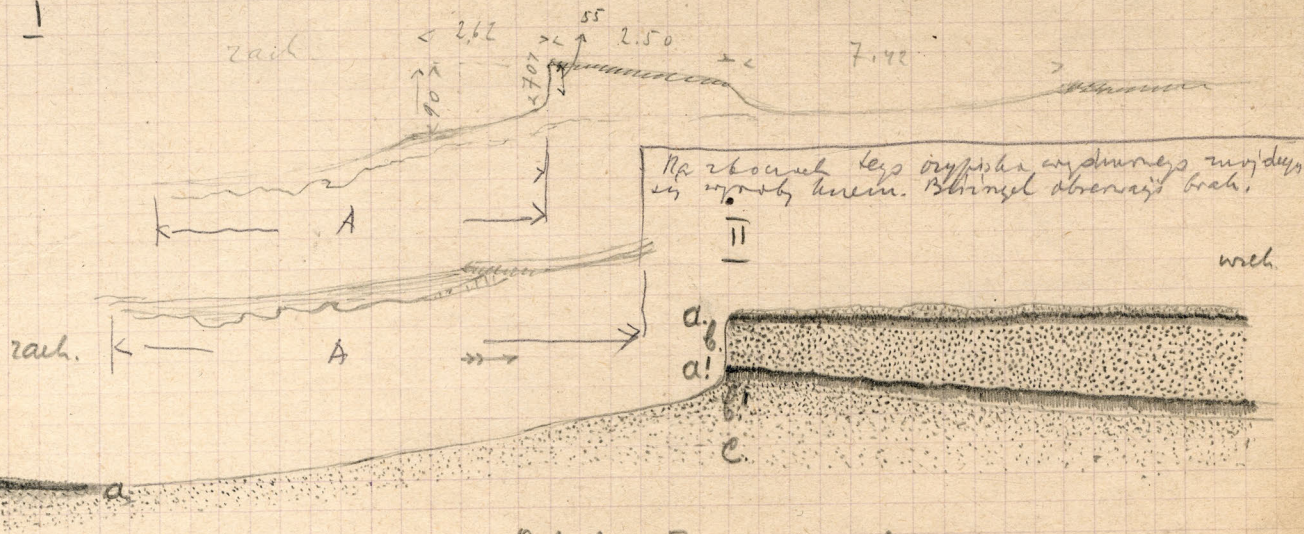 I
55
2,62
2.50
7.42
zach.
90
70
Na zboczach tego ozypiska wydmowego znajdują
się wyroby krzem. Bliższych obserwacji brak.
A
II
wsch.
a.
b.
zach.
A
a!
b!
c.
a.